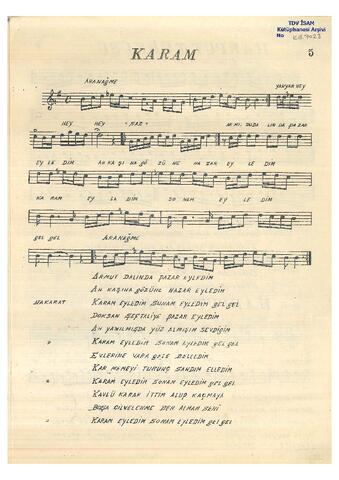 TDV İSAM
Kütüphanesi Arşivi
No
KARAM 5
ARANAĞME YAR YAR HEY
HEY HEY NAZ AR MU DUDA LIN DA PAZAR
EY LE DİM AH KA ŞI NA GÖ ZÜ NE HA ZAR EY LE DİM
KA RAM EY LE DİM SO NEM EY LE DİM
gel gel ARANAĞME
ARMUT DALINDA PAZAR EYLEDİM
AH KAŞINA GÖZÜNE HAZAR EYLEDİM
NAKARAT KARAM EYLEDİM SONAM EYLEDİM gel gel
DOKSAN ŞEFTALİYE PAZAR EYLEDİM
AH YANILMIŞDA YÜZ ALMIŞIM SEVDİĞİM
" KARAM EYLEDİM SONAM EYLEDİM gel gel
EVLERİNE VARA GELE
" KAR MEMEYİ TURUNÇ SANDIM ELLEDİM
" KARAM EYLEDİM SONAM EYLEDİM gel gel
KAVLÜ KARAR ITTIM ALUP KAÇMAYA
BOŞA DER ALMAM SENİ
" KARAM EYLEDİM SONAM EYLEDİM gel gel